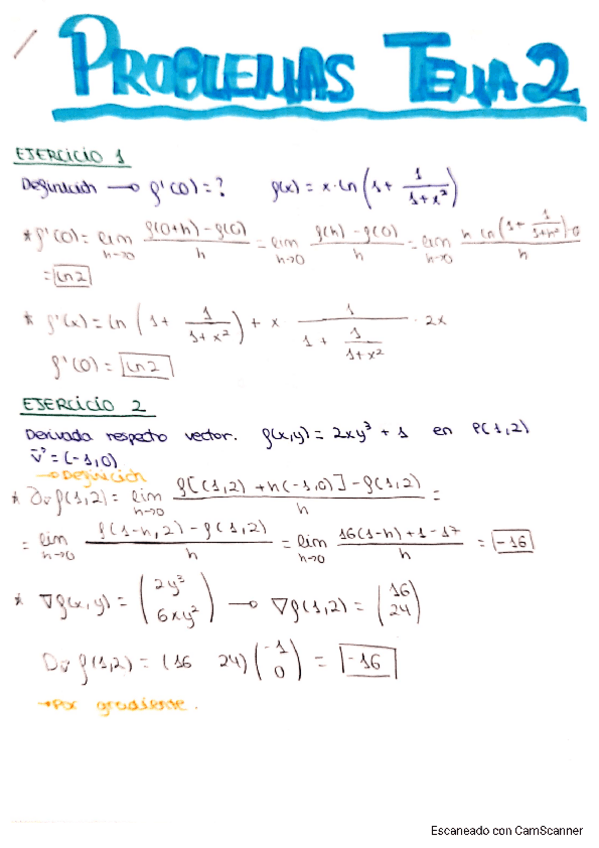 PROBLEMAS TEMA 2
EJERCICIO 1
Definición → f'(0) = ? f(x) = x·ln(1 + 1/(1+x²))
* f'(0) = lim h→0 (f(0+h) - f(0))/h = lim h→0 (f(h) - f(0))/h = lim h→0 (h ln(1 + 1/(1+h²)) - 0)/h
= ln 2
* f'(x) = ln(1 + 1/(1+x²)) + x 1/(1 + 1/(1+x²)) · 2x
f'(0) = ln 2
EJERCICIO 2
Derivada respecto vector. f(x,y) = 2xy³ + 1 en P(1,2)
v⃗ = (-1,0)
→ Definición
* Dv f(1,2) = lim h→0 (f[(1,2) + h(-1,0)] - f(1,2))/h =
= lim h→0 (f(1-h, 2) - f(1,2))/h = lim h→0 (16(1-h) + 1 - 17)/h = -16
* ∇f(x,y) = (2y³ 6xy²) → ∇f(1,2) = (16 24)
Dv f(1,2) = (16 24)(-1 0) = -16
→ Por gradiente.
Escaneado con CamScanner